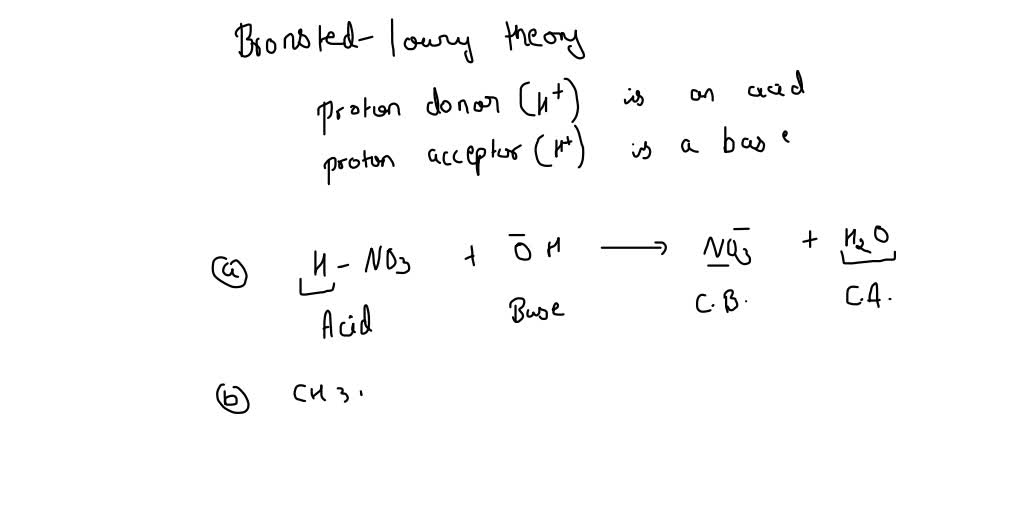 Bronsted-lowry theory
proton donor (H⁺) is an acid
proton acceptor (H⁺) is a base
(a) H - NO3 + ŌH ⟶ NO3⁻ + H2O
Acid Base C.B. C.A.
(b) CH3.